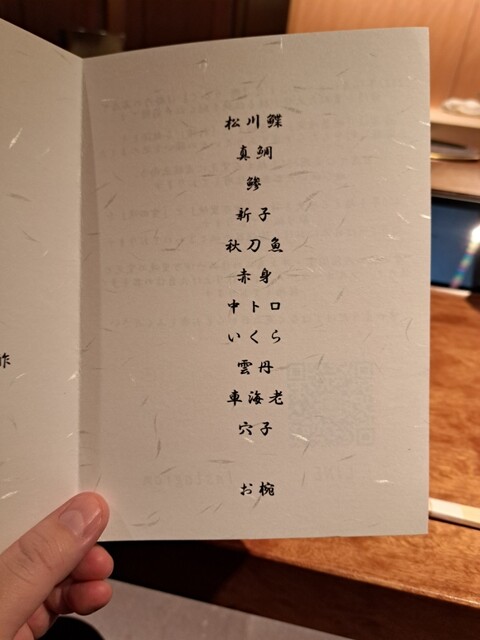 松川鰈
真鯛
鯵
新子
秋刀魚
赤身
中トロ
いくら
雲丹
車海老
穴子
お椀
酢